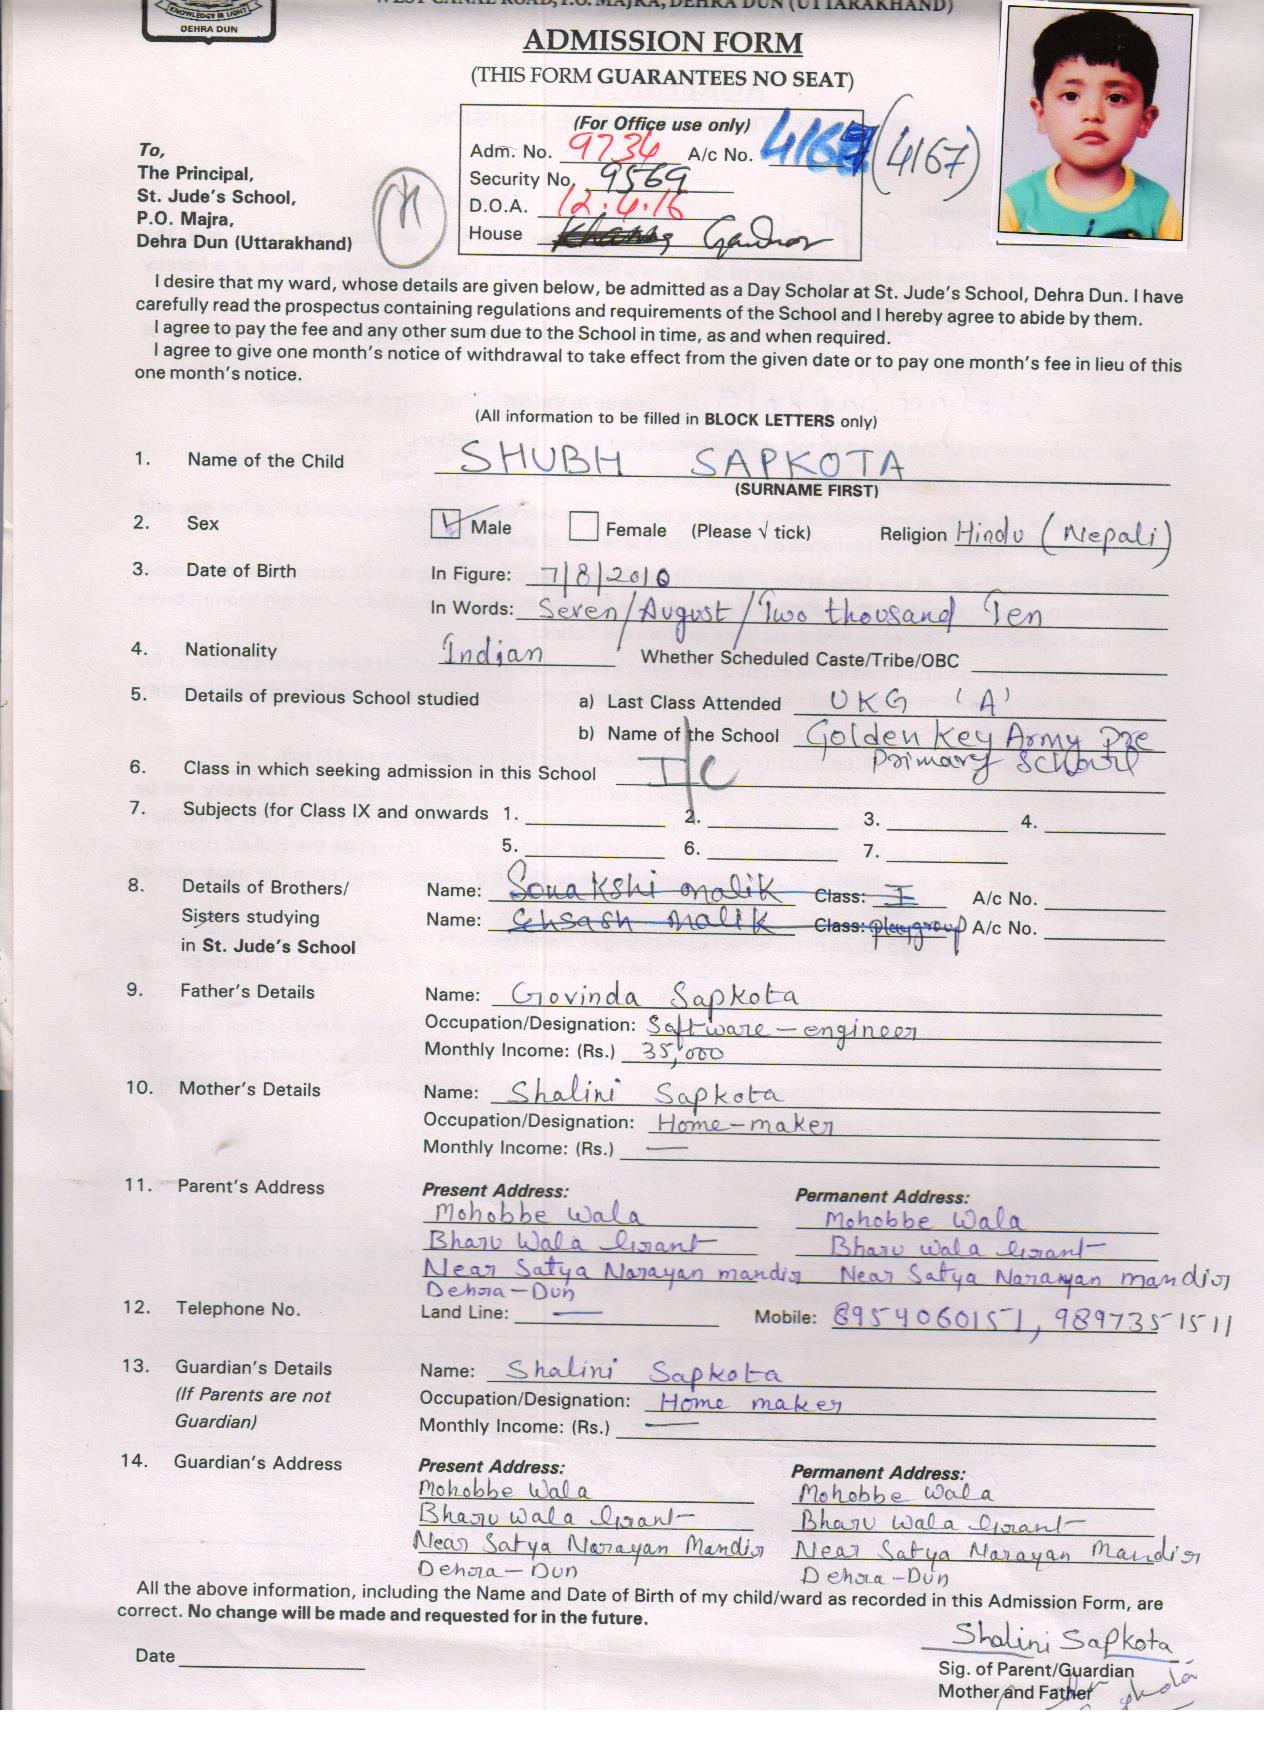 KNOWLEDGE IS LIGHT
DEHRA DUN
WEST CANAL ROAD, P.O. MAJRA, DEHRA DUN (UTTARAKHAND)
ADMISSION FORM
(THIS FORM GUARANTEES NO SEAT)
(For Office use only)
Adm. No. 9734 A/c No. 4167 (4167)
Security No. 9569
D.O.A. 12.4.16
House
To,
The Principal,
St. Jude's School,
P.O. Majra,
Dehra Dun (Uttarakhand)
I desire that my ward, whose details are given below, be admitted as a Day Scholar at St. Jude's School, Dehra Dun. I have
carefully read the prospectus containing regulations and requirements of the School and I hereby agree to abide by them.
I agree to pay the fee and any other sum due to the School in time, as and when required.
I agree to give one month's notice of withdrawal to take effect from the given date or to pay one month's fee in lieu of this
one month's notice.
(All information to be filled in BLOCK LETTERS only)
1. Name of the Child SHUBH SAPKOTA
(SURNAME FIRST)
2. Sex Male Female (Please √ tick) Religion Hindu (Nepali)
3. Date of Birth In Figure: 7/8/2010
In Words: Seven/August/Two thousand Ten
4. Nationality Indian Whether Scheduled Caste/Tribe/OBC
5. Details of previous School studied a) Last Class Attended UKG 'A'
b) Name of the School Golden Key Army Pre
primary School
6. Class in which seeking admission in this School I/C
7. Subjects (for Class IX and onwards 1. 2. 3. 4.
5. 6. 7.
8. Details of Brothers/ Name: Sonakshi malik Class: I A/c No.
Sisters studying Name: malik Class: playgroup A/c No.
in St. Jude's School
9. Father's Details Name: Govinda Sapkota
Occupation/Designation: Software-engineer
Monthly Income: (Rs.) 35,000
10. Mother's Details Name: Shalini Sapkota
Occupation/Designation: Home-maker
Monthly Income: (Rs.) —
11. Parent's Address Present Address: Permanent Address:
Mohobbe Wala Mohobbe Wala
Bharu Wala Grant Bharu Wala Grant
Near Satya Narayan mandir Near Satya Narayan mandir
Dehra-Dun
12. Telephone No. Land Line: — Mobile: 8954060151, 9897351511
13. Guardian's Details Name: Shalini Sapkota
(If Parents are not Occupation/Designation: Home maker
Guardian) Monthly Income: (Rs.) —
14. Guardian's Address Present Address: Permanent Address:
Mohobbe Wala Mohobbe Wala
Bharu Wala Grant Bharu Wala Grant
Near Satya Narayan Mandir Near Satya Narayan Mandir
Dehra-Dun Dehra-Dun
All the above information, including the Name and Date of Birth of my child/ward as recorded in this Admission Form, are
correct. No change will be made and requested for in the future.
Shalini Sapkota
Date Sig. of Parent/Guardian
Mother and Father